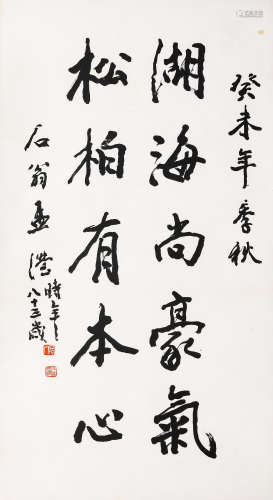 癸未年季秋
湖海尚豪氣
松柏有本心
石翁孟濋時年
八十三歲